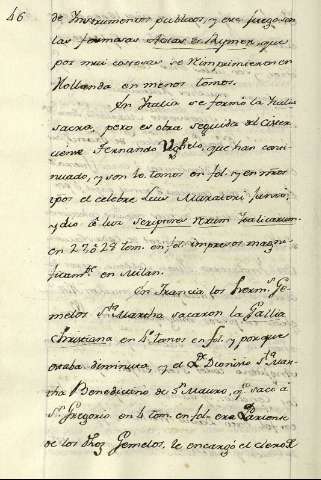 46
de Instrumentos publicos, y ese juego son
las famosas Actas de Rymer, que
por mui costosas se reimprimieron en
Hollanda en menos tomos.
En Italia se formó la Italia
sacra, pero es obra seguida del Cister
ciense Fernando Ughelo, que han conti
nuado, y son 10 tomos en fol. y en ntros
por el celebre Luis Muratori junto,
y dio á luz scriptores rerum Italicarum
en 27 ó 28 tom. en fol. impresos magni-
ficamte en Milan.
En Francia los herms Ge-
melos Sta Martha sacaron la Gallia
Christiana en 4 tomos en fol. y porque
estaba diminuta, y el Dn Dionisio Sta Mar-
tha Benedictino de Sn Mauro, qe sacó a
Sn Gregorio en 4 tom. en fol. era Pariente
de los dhos Gemelos, le encargó el clero